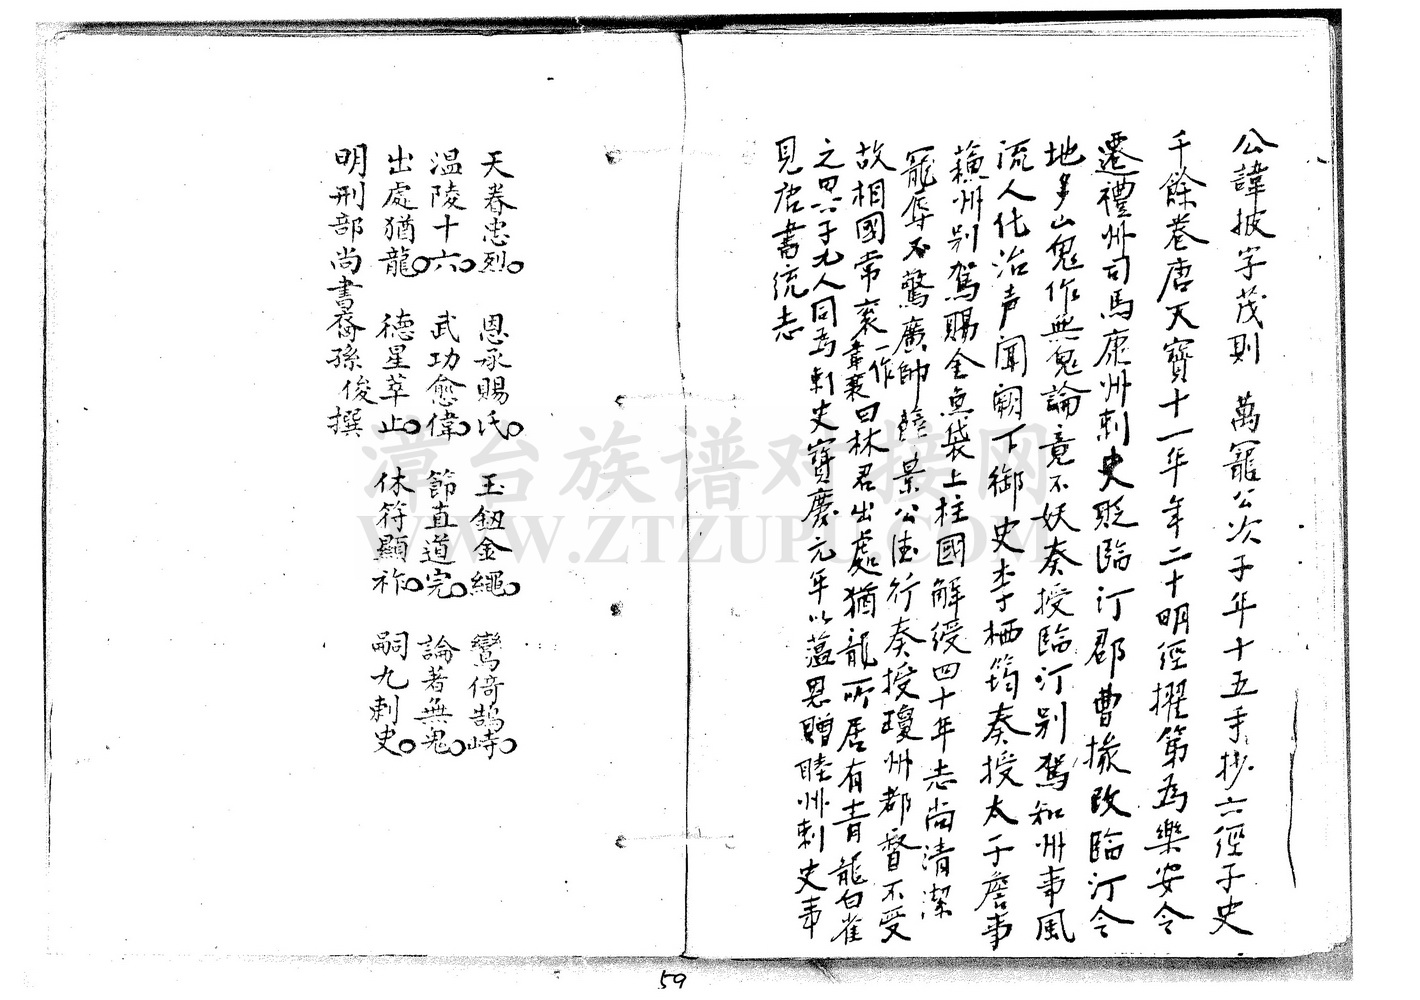 公諱披字茂則　萬寵公次子年十五手抄六經子史
千餘卷唐天寶十一年年二十明經擢第為樂安令
遷禮州司馬康州刺史貶臨汀郡曹掾改臨汀令
地多山鬼作無鬼論竟不妖奏授臨汀別駕知州事風
流人化治声聞闕下御史李栖筠奏授太子詹事
蘇州別駕賜金魚袋上柱國解綬四十年志尚清潔
寵辱不驚廣帥 景公德行奏授瓊州都督不受
故相國常袞一作韋袞曰林君出處猶龍所居有青龍白雀
之異子九人同為刺史寶慶元年以蔭恩贈睦州刺史事
見唐書統志
天眷忠烈。 恩承賜氏。 玉鈕金繩。 鸞倚鵠峙。
温陵十六。 武功愈偉。 節直道完。 論著無鬼。
出處猶龍。 德星萃止。 休符顯祚。 嗣九刺史。
明刑部尚書裔孫俊撰
漳台族谱对接网
WWW.ZTZUPU.COM
59